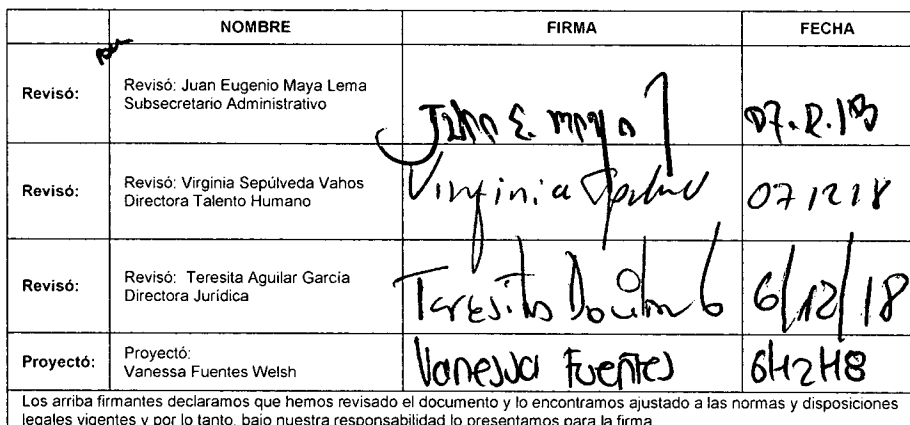 NOMBRE FIRMA FECHA
Revisó: Revisó: Juan Eugenio Maya Lema
Subsecretario Administrativo
Juan E. Maya 07.12.18
Revisó: Revisó: Virginia Sepúlveda Vahos
Directora Talento Humano
Virginia 07 12 18
Revisó: Revisó: Teresita Aguilar García
Directora Jurídica
Teresita 6/12/18
Proyectó: Proyectó:
Vanessa Fuentes Welsh
Vanessa Fuentes 6/12/18
Los arriba firmantes declaramos que hemos revisado el documento y lo encontramos ajustado a las normas y disposiciones
legales vigentes y por lo tanto, bajo nuestra responsabilidad lo presentamos para la firma.